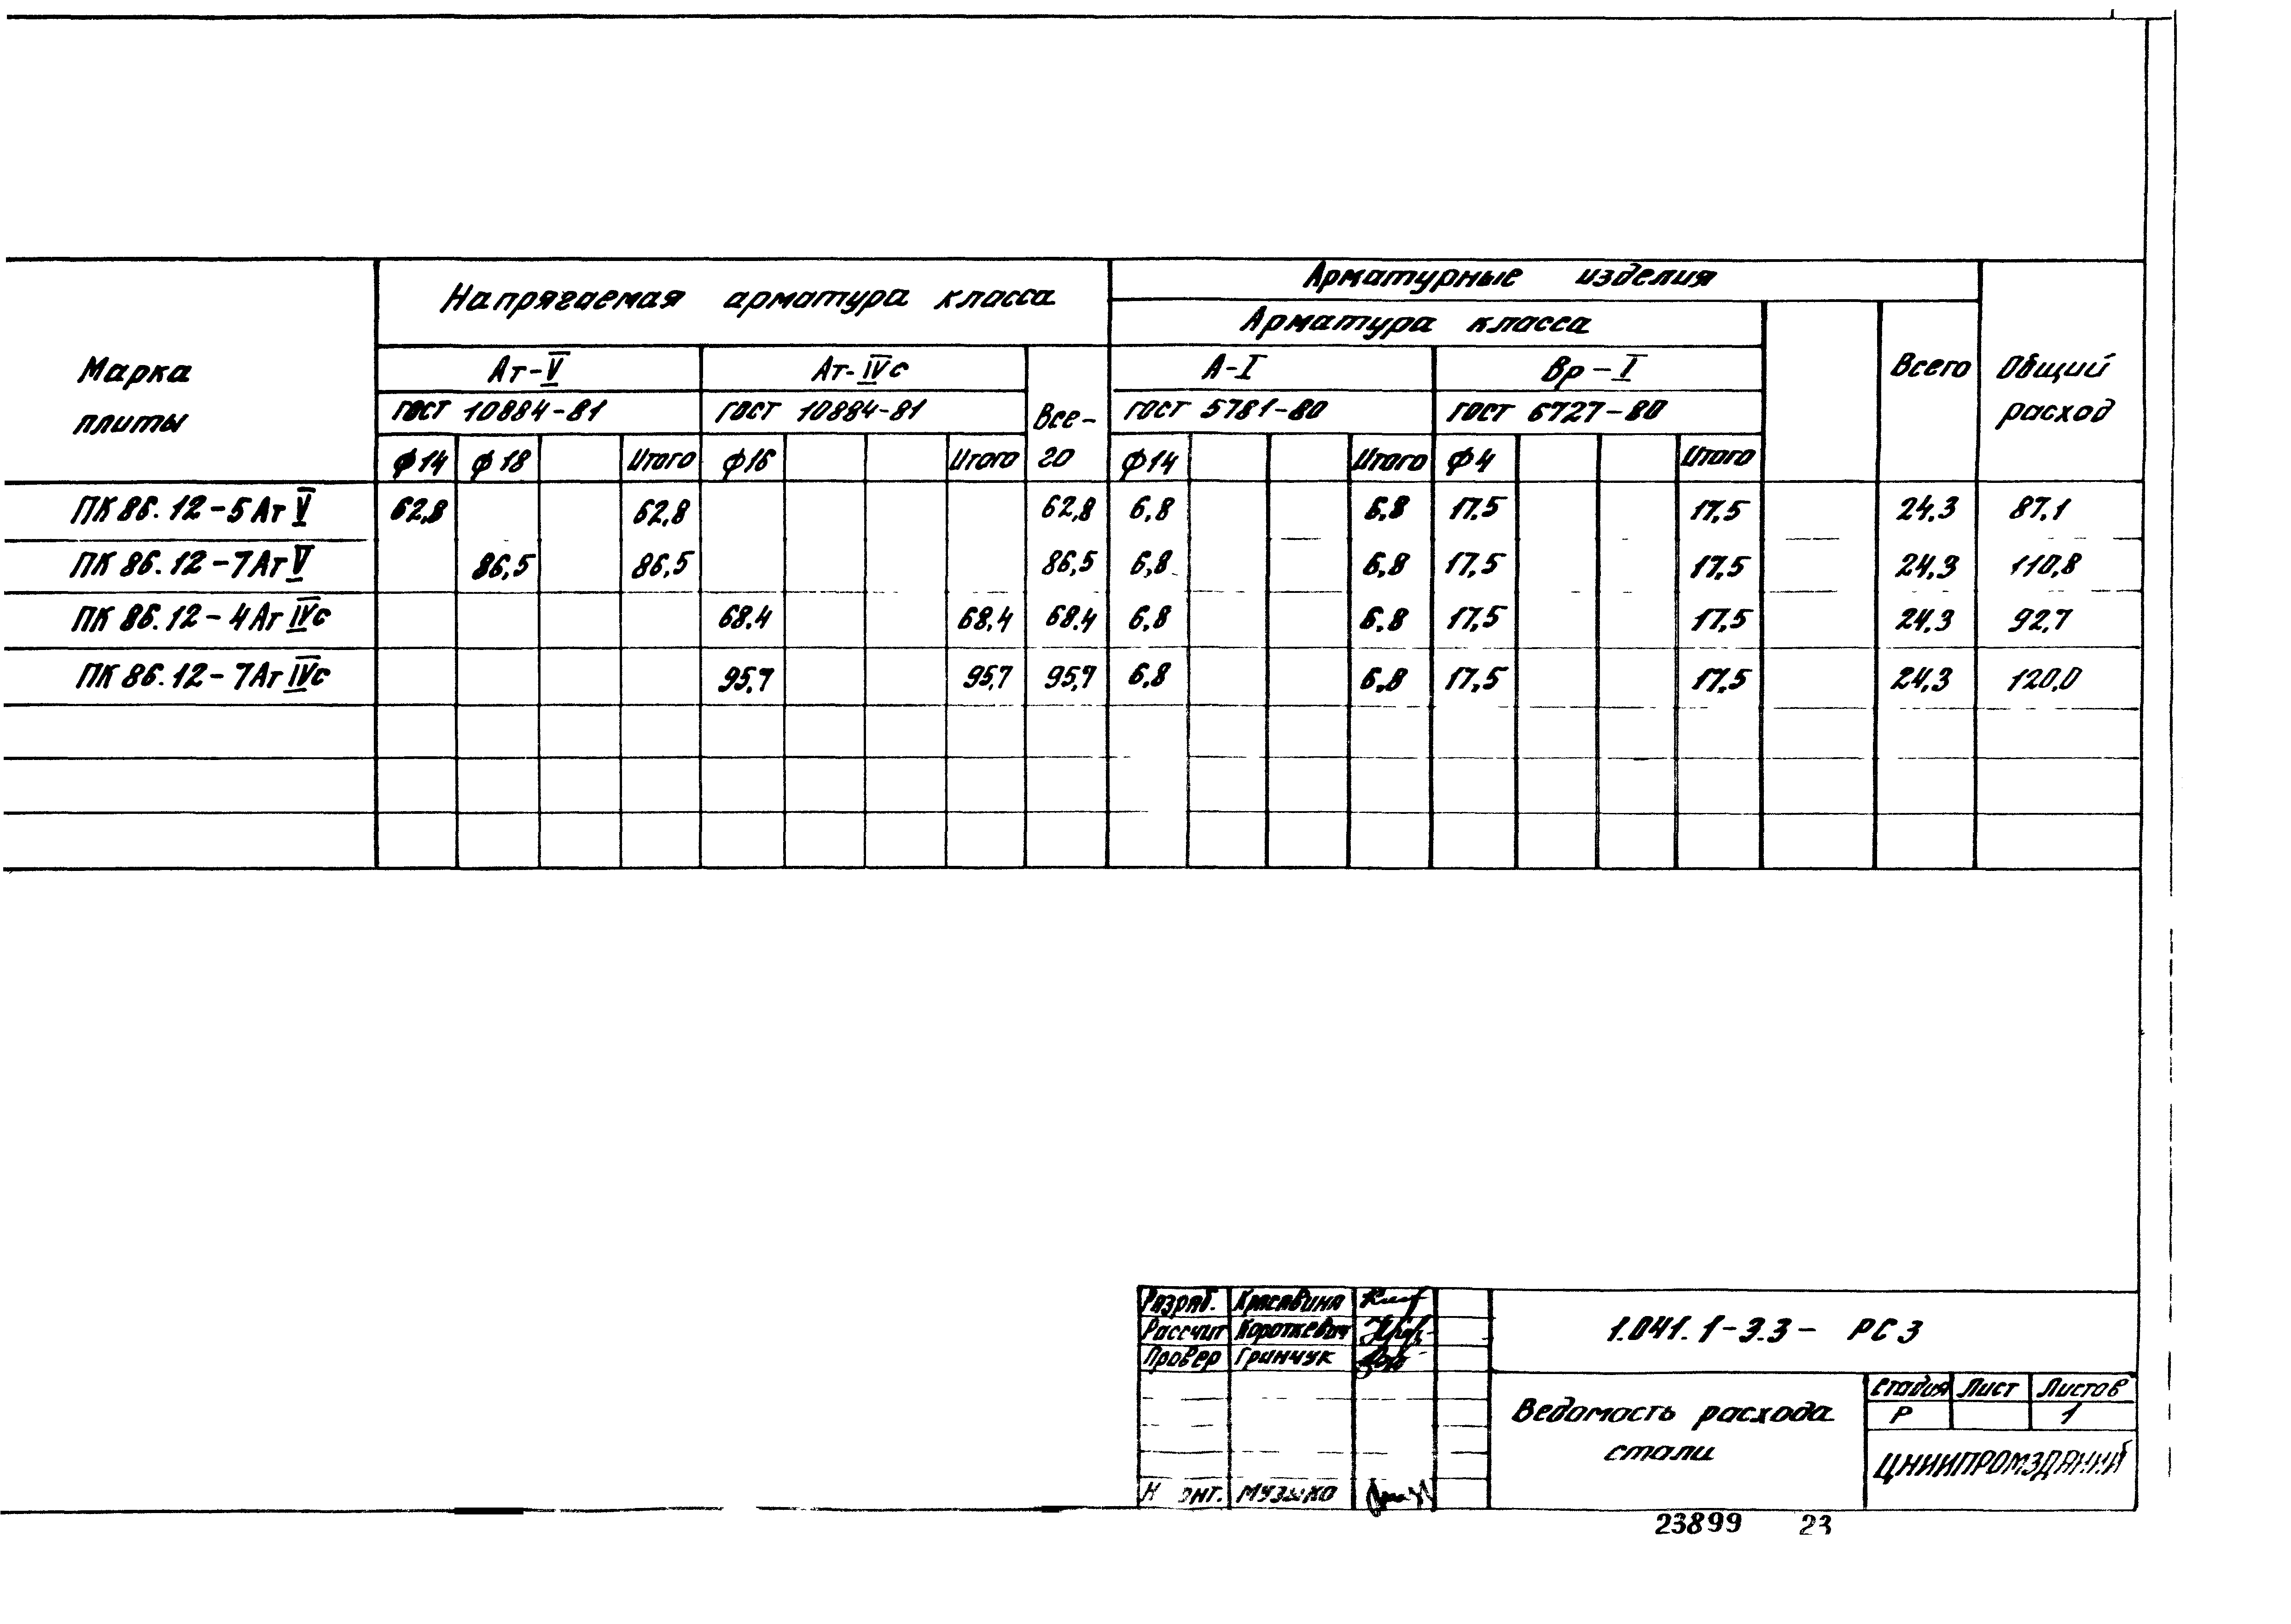 Марка плиты
Напрягаемая арматура класса
Арматурные изделия
Арматура класса
Ат-V
Ат-IVс
Все-го
А-I
Вр-I
Всего
Общий расход
ГОСТ 10884-81
ГОСТ 10884-81
ГОСТ 5781-80
ГОСТ 6727-80
ф14 ф18 Итого ф16 Итого ф14 Итого ф4 Итого
ПК 86.12-5АтV 62,8 62,8 62,8 6,8 6,8 17,5 17,5 24,3 87,1
ПК 86.12-7АтV 86,5 86,5 86,5 6,8 6,8 17,5 17,5 24,3 110,8
ПК 86.12-4АтIVс 68,4 68,4 68,4 6,8 6,8 17,5 17,5 24,3 92,7
ПК 86.12-7АтIVс 95,7 95,7 95,7 6,8 6,8 17,5 17,5 24,3 120,0
Разраб. Красавина
Рассчит Короткевич
Провер Гринчук
Музыко
1.041.1-3.3- РС3
Ведомость расхода
стали
Стадия Лист Листов
Р 1
ЦНИИПРОМЗДАНИЙ
23899 23